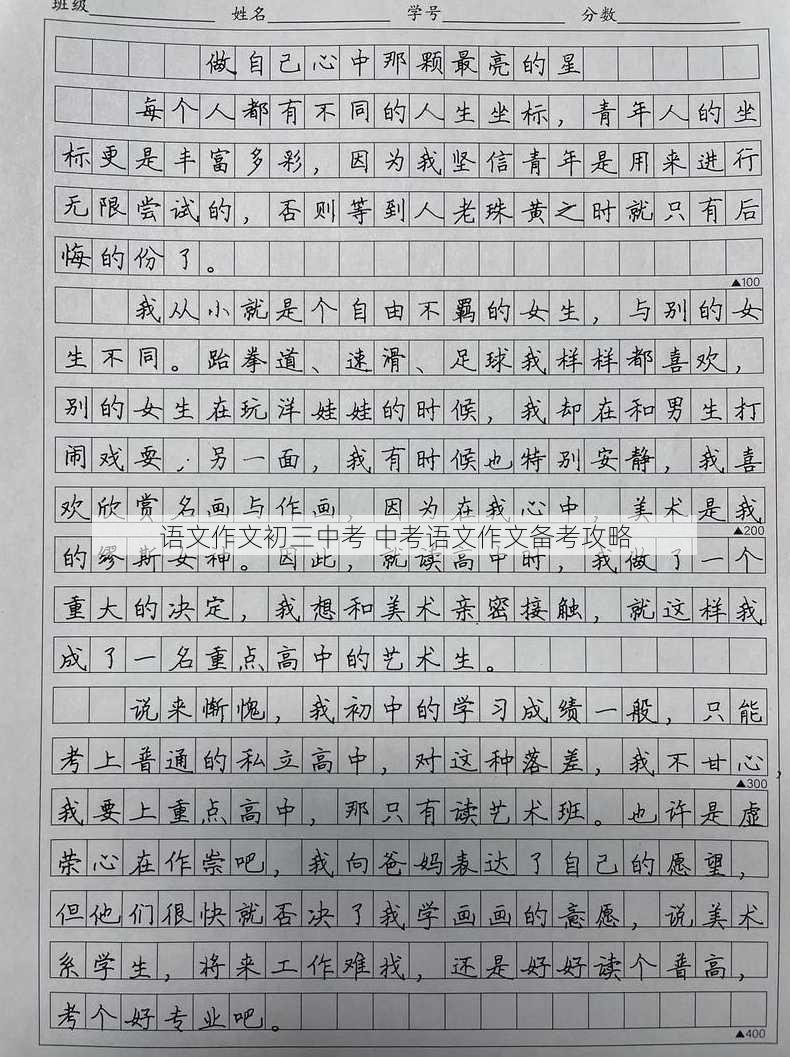 班级 姓名 学号 分数
做自己心中那颗最亮的星
每个人都有不同的人生坐标，青年人的坐
标更是丰富多彩，因为我坚信青年是用来进行
无限尝试的，否则等到人老珠黄之时就只有后
悔的份了。
▲100
我从小就是个自由不羁的女生，与别的女
生不同。跆拳道、速滑、足球我样样都喜欢，
别的女生在玩洋娃娃的时候，我却在和男生打
闹戏耍．另一面，我有时候也特别安静，我喜
欢欣赏名画与作画，因为在我心中，美术是我
▲200
语文作文初三中考 中考语文作文备考攻略
的缪斯女神。因此，就读高中时，我做了一个
重大的决定，我想和美术亲密接触，就这样我
成了一名重点高中的艺术生。
说来惭愧，我初中的学习成绩一般，只能
考上普通的私立高中，对这种落差，我不甘心，
▲300
我要上重点高中，那只有读艺术班。也许是虚
荣心在作祟吧，我向爸妈表达了自己的愿望，
但他们很快就否决了我学画画的意愿，说美术
系学生，将来工作难找，还是好好读个普高，
考个好专业吧。
▲400